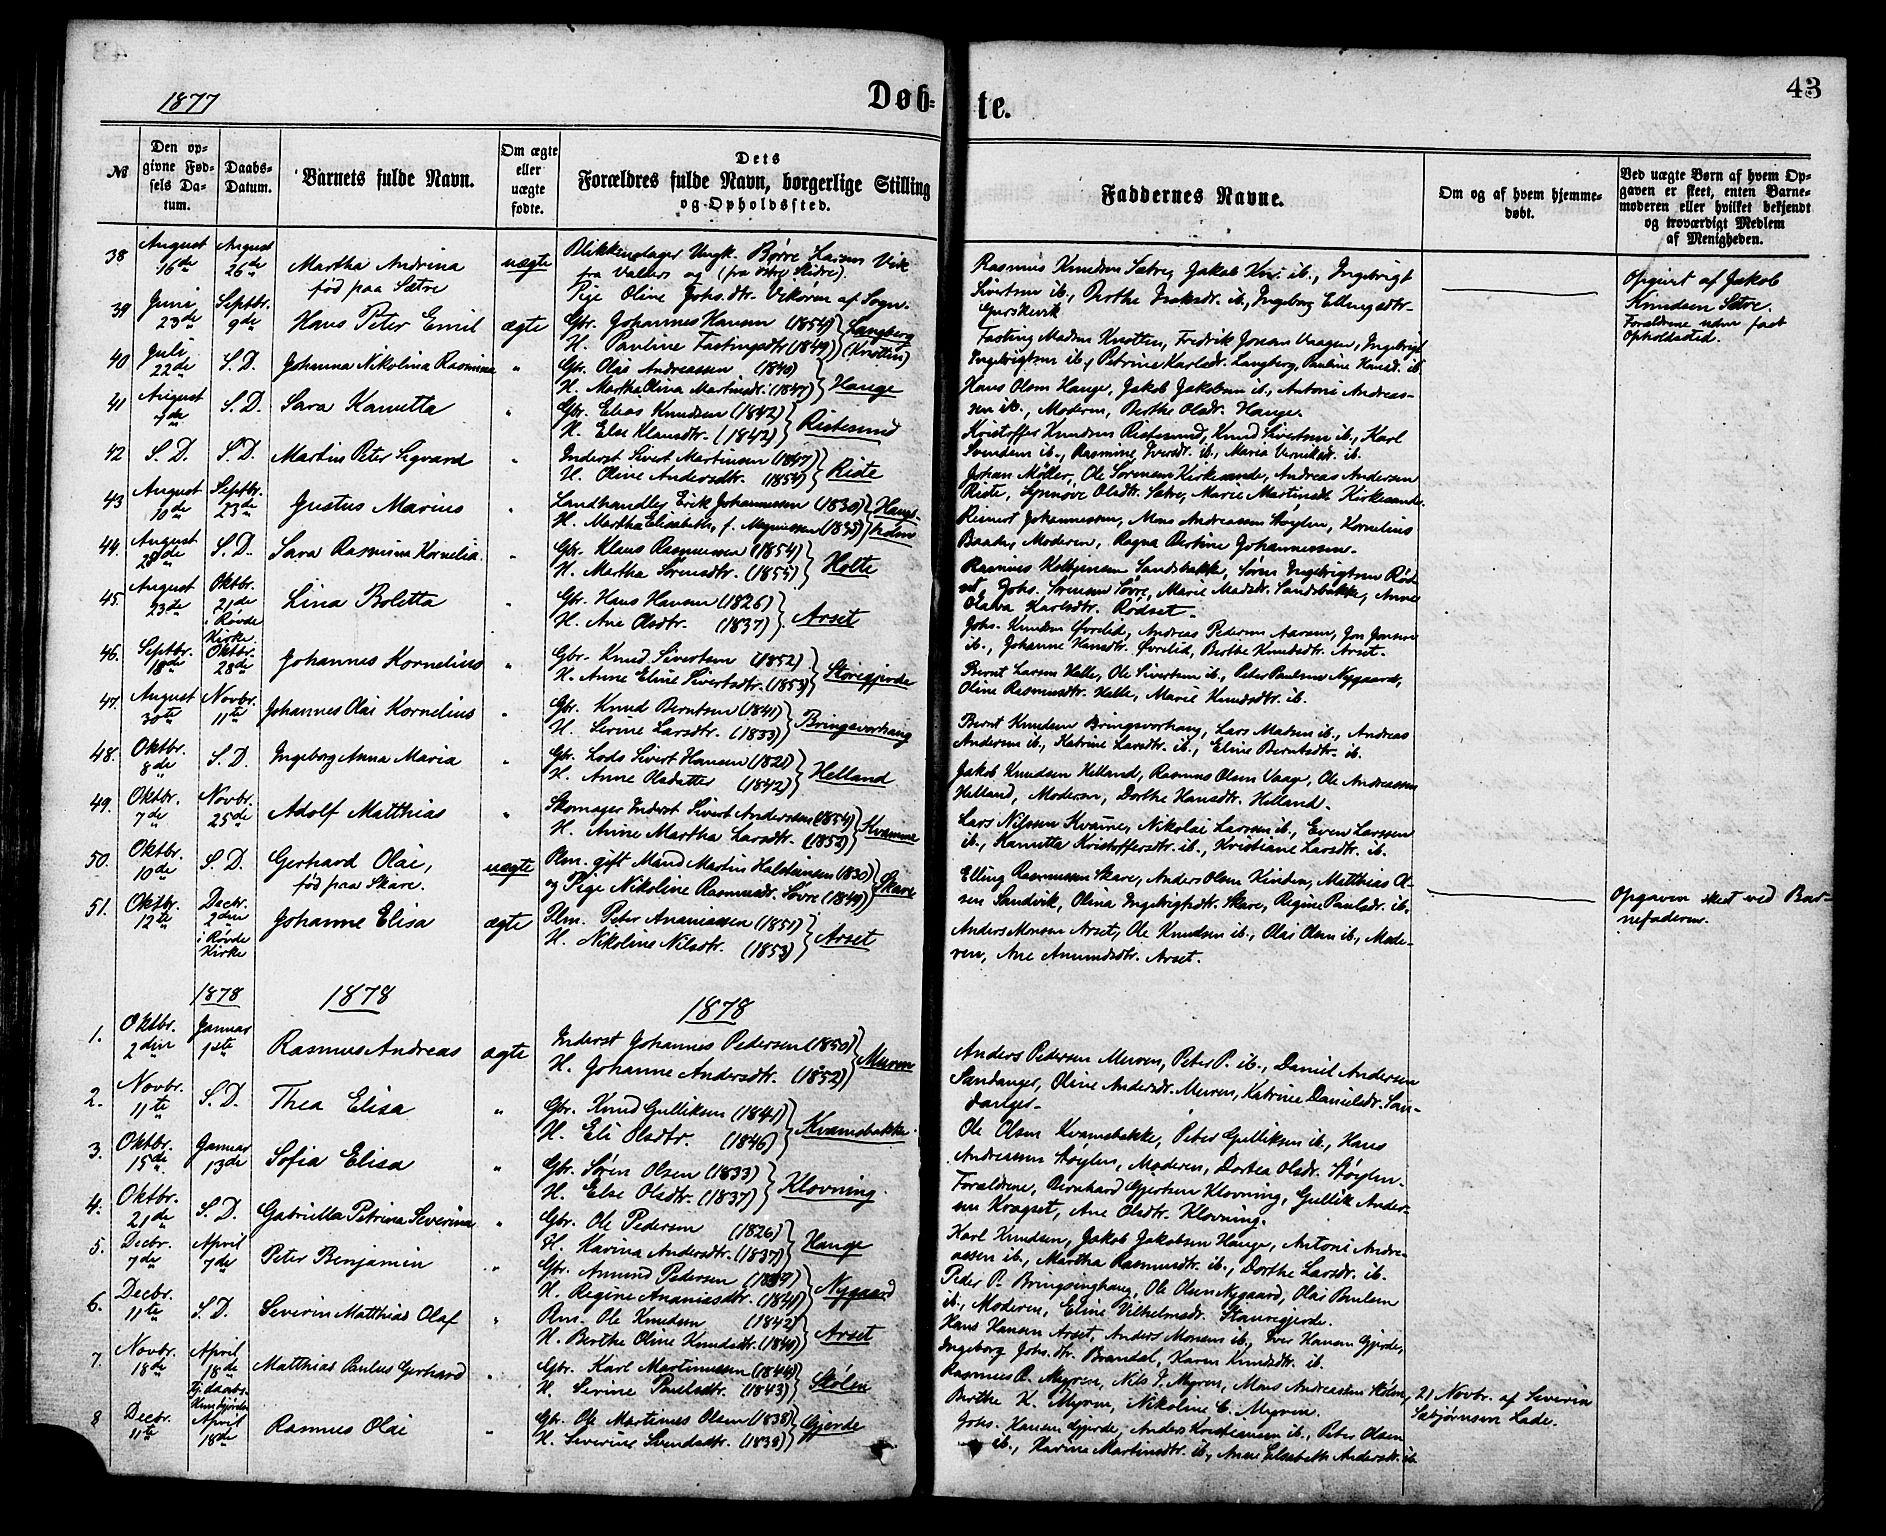 43
1877
Døbte.
№
Den opgivne Fødsels Datum.
Daabs-Datum.
Barnets fulde Navn.
Om ægte eller uægte fødte.
Dets Forældres fulde Navn, borgerlige Stilling og Opholdssted.
Faddernes Navne.
Om og af hvem hjemmedøbt.
Ved uægte Børn af hvem Opgaven er skeet, enten Barnemoderen eller hvilket bekjendt og troværdigt Medlem af Menigheden.
38 August 16de August 26de Martha Andrina født paa Sætre uægte
Blikkenslager Ungk. Børre Larsen Vik
fra Valders og (fra østre Slidre).
Pige Oline Johs.dtr. Vikøren af Sogn.
Rasmus Knudsen Sætre, Jakob Kn. ib., Ingebrigt
Sivertsen ib., Berthe Isaksdr. ib., Ingeborg Ellingsdtr.
Gurskevik
Opgivet af Jakob
Knudsen Sætre.
Forældrene uden fast
Opholdssted.
39 Juni 23de Septbr. 9de Hans Peter Emil ægte
Gbr. Johannes Hansen (1854)
H. Pauline Fastingsdtr (1849) Langberg (Knotten)
Fasting Madsen Knotten, Fredrik Josam Vaagen, Ingebrigt
Ingebrigtsen ib., Petrine Karlsdr. Langberg, Pauline Hansd. ib.
40 Juli 22de S. D. Johanna Nikolina Rasmina "
Gbr. Olai Andreassen (1840)
H. Martha Oliva Martinsdr. (1847) Hauge
Hans Olsen Hauge, Jakob Jakobsen ib., Antoni Andreas-
sen ib., Moderen, Berthe Olsdr. Hauge.
41 August S. D. Sara Kanutta "
Gbr. Elias Knudsen (1842)
H. Else Klausdtr. (1842) Ristesund
Kristoffer Knudsen Ristesund, Knud Sivertsen ib., Karl
Svendsen ib., Rasmine Iversdr. ib., Maria ib.
42 S. D. S. D. Martin Peter Sigvard "
Inderst Sivert Martinsen (1847)
H. Oline Andersdtr. (1854) Riste
Johan Møller, Ole Sørensen Kirkesande, Andreas Andersen
Riste, Synnøve Olsdtr. Sætre, Marie Martinsdr. Kirkesande.
43 August 10de Septbr. 23de Gustus Marius "
Landhandler Erik Johannessen (1830)
H. Martha Elisabeth, f. (1835)
Reinert Johannessen, Mons Andreassen Støylen, Kornelius
Baate, Moderen, Ragna Bertine Johannessen.
44. August 28de S. D. Sara Rasmina Kornelia "
Gbr. Klaus Rasmussen (1854)
H. Martha Sørensdtr. (1855) Holte
Rasmus Sandsbakke, Søren Ingebrigtsen Rød-
set, Johs. Sørensen Sovre, Marie Madsdr. Sandsbakke, Anne
Olava Karlsdtr. Rødset.
45. August 23de Oktbr. 21de i Røvde Kirke. Lina Boletta "
Gbr. Hans Hansen (1826)
H. Ane Olsdtr. (1837) Aarset
Johs. Knudsen Øvrelid, Andreas Pedersen Aarsen, Jon Jonsen
ib., Johanne Hansdtr. Øvrelid, Berthe Knudsdtr. Arset.
46. Septbr. 18de Oktbr. 28de Johannes Kornelius "
Gbr. Knud Sivertsen (1852)
H. Anne Eline Sivertsdtr. (1853)
Bernt Larsen Helle, Ole Sivertsen ib., Peter Paulsen Nygaard,
Oline Rasmusdtr. Helle, Marie Knudsdtr. ib.
47. August 30te Novbr. 11te Johannes Olai Kornelius "
Gbr. Knud Berntsen (1841)
H. Sirine Larsdtr. (1833) Bringsvorhaug
Bernt Knudsen Bringsvorhaug, Lars Madsen ib., Andreas
Andersen ib., Katrine Larsdtr. ib., Eline Berntsdtr. ib.
48. Oktbr. 8de S. D. Ingeborg Anna Maria "
Gbr. Lods Sivert Hansen (1821)
H. Anne Olsdatter (1842) Helland
Jakob Knudsen Helland, Rasmus Olsen Vaage, Ole Andreassen
Helland, Moderen, Dorthe Hansdtr. Helland.
49. Oktbr. 7de Novbr. 25de Adolf Matthias "
Skomager Inderst Sivert Anderssen (1854)
H. Anne Martha Larsdtr. (1852) Kvamme
Lars Nilssen Kvame, Nikolai Larssen ib., Even Larssen
ib., Kanutta Kristoffersdtr. ib., Kristiane Larsdtr. ib.
50. Oktbr. 10de S. D. Gerhard Olai, født paa Skare. uægte
Plm. gift Mand Martin Halsteinsen (1830)
og Pige Nikoline Rasmusdr. Sovre (1849) Skare
Elling Rasmussen Skare, Anders Olsen Kinden, Matthias Ol-
sen Sandvik, Olina Ingebrigtsdtr. Skare, Regine Paulsdr. ib.
Opgaven skeet ved Bar-
nefaderen.
51. Oktbr. 12te Decbr. 2den i Røvde Kirke Johanne Elisa ægte
Plm. Peter Ananiassen (1851)
H. Nikoline Nilsdtr. (1853) Arset
Anders Monsen Arset, Ole Knudsen ib., Olai Olsen ib., Mode-
ren, Ane Amundsdtr. Arset.
1878 1878 1878
1. Oktbr. 2den Januar 1ste Rasmus Andreas ægte
Inderst Johannes Pedersen (1850)
H. Johanne Andersdtr. (1852) Murren
Anders Pedersen Murren, Peter P. ib., Daniel Andersen
Sandanger, Oline Andersdr. Murren, Katrine Danielsdr. San-
danger.
2. Novbr. 11te S. D. Thea Elisa "
Gbr. Knud Gulliksen (1841)
H. Eli Olsdtr. (1846) Kvamsbakke.
Ole Olsen Kvamsbakke, Peter Gulliksen ib., Hans
Andreassen Støylen, Moderen, Dorthea Olsdr. Støylen.
3. Oktbr. 15de Januar 13de Sofia Elisa "
Gbr. Søren Olsen (1833)
H. Else Olsdtr. (1837) Klovning.
Forældrene, Bernhard Gjertsen Klovning, Gullik Ander-
sen Kragset, Ane Olsdtr. Klovning.
4. Oktbr. 21de S. D. Gabriella Petrina Severina "
Gbr. Ole Pedersen (1826)
H. Karina Andersdtr. (1837) Hauge
Karl Knudsen, Jakob Jakobsen Hauge, Antoni Andre-
assen ib., Martha Rasmusdtr. ib., Dorthe Larsdr. ib.
5. Decbr. 7de April 7de Peter Benjamin "
Gbr. Amund Pedersen
H. Regine Ananiasdtr. (1841) Nygaard
Peder P. Bringsinghaug, Ole Olsen Nygaard, Olai Paulsen
ib., Moderen, Eline Vilhelmsdr.
6. Decbr. 11te S. D. Severin Matthias Olaf "
Ole Knudsen (1842)
H. Berthe Oline Knudsdtr. (1840) Arset
Hans Hansen Arset, Anders Monsen ib., Iver Hansen Gjerde,
Ingeborg Johs.dtr. Brandal, Karen Knudsdtr. ib.
7. Novbr. 18de April 18de Matthias Paulus Gerhard "
Gbr. Karl Martinussen (1844)
H. Sirine Paulsdtr. (1843) Stølen
Rasmus R. Myren, Nils P. Myren, Mons Andreassen Stølen,
Berthe K. Myren, Nikoline E. Myren.
21 Novbr. af Severin
Sæbjørnsen Lade.
8 Decbr. 11te April 18de Rasmus Olai "
Gbr. Ole Martinus Olsen (1838)
H. Severine Svendsdtr. (1838) Gjerde
Johs. Hansen Gjerde, Anders Kristiansen ib., Peter Olsen
ib., Karine Martinsdtr. ib., Anne Elisabeth Andersdr. ib.